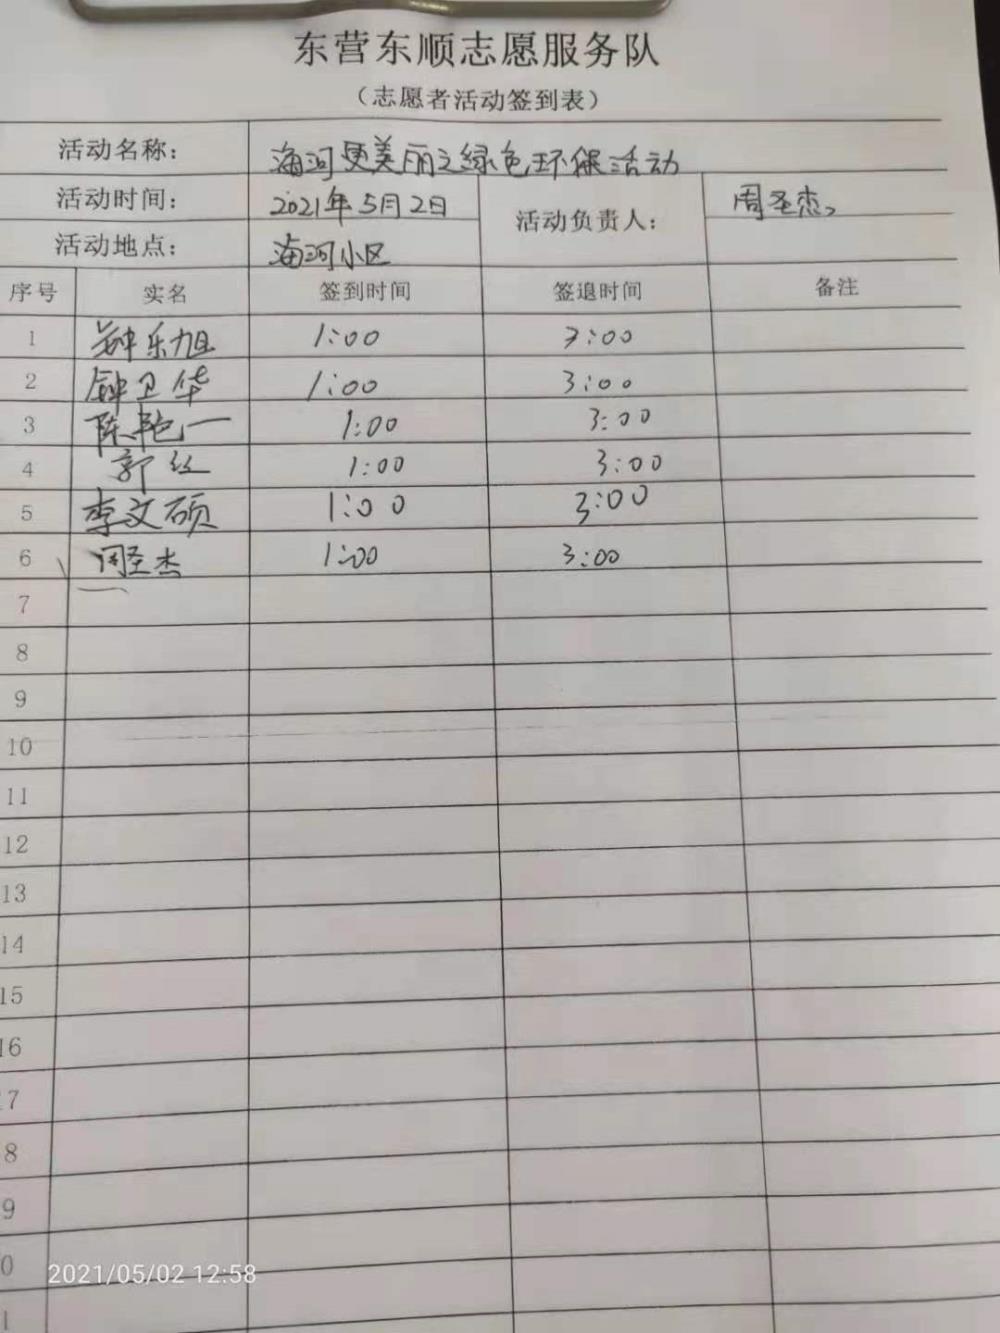 东营东顺志愿服务队
（志愿者活动签到表）
活动名称： 海河更美丽之绿色环保活动
活动时间： 2021年5月2日 活动负责人： 周圣杰
活动地点： 海河小区
序号 实名 签到时间 签退时间 备注
1 乐旭 1:00 3:00
2 钟卫华 1:00 3:00
3 陈艳一 1:00 3:00
4 郭红 1:00 3:00
5 李文硕 1:00 3:00
6 周圣杰 1:00 3:00
7
8
9
10
11
12
13
14
15
16
7
8
9
0
2021/05/02 12:58
1